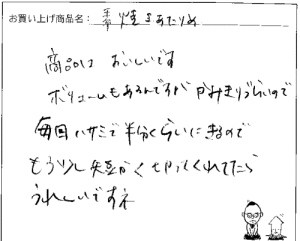 お買い上げ商品名: 焼きあたりめ
商品は おいしいです
ボリュームもあるんですが かみきりづらいので
毎回 ハサミで 半分くらいに きるので
もう少し 短かく 切ってくれてたら
うれしいですネ